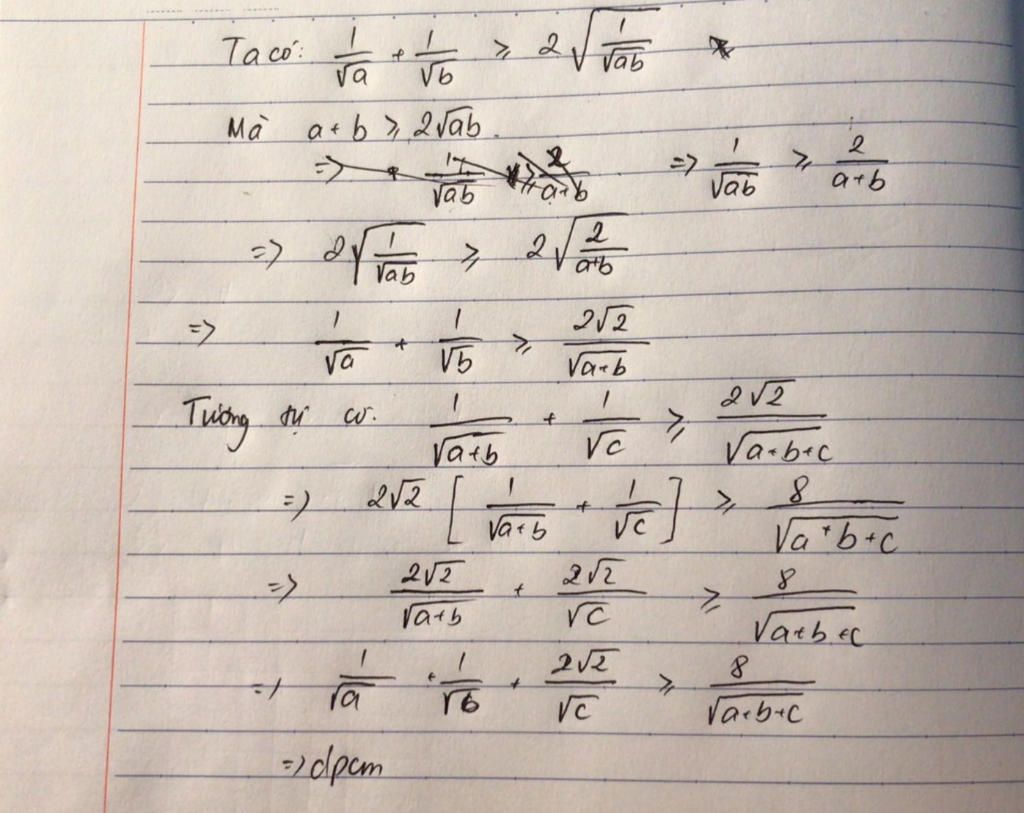 Ta có: 1/√a + 1/√b ⩾ 2√(1/√ab)
Mà a+b ⩾ 2√ab.
=> 1/√ab ⩾ 2/(a+b) => 1/√ab ⩾ 2/(a+b)
=> 2√(1/√ab) ⩾ 2√(2/(a+b))
=> 1/√a + 1/√b ⩾ 2√2/√(a+b)
Tương tự có. 1/√(a+b) + 1/√c ⩾ 2√2/√(a+b+c)
=) 2√2 [ 1/√(a+b) + 1/√c ] ⩾ 8/√(a+b+c)
=> 2√2/√(a+b) + 2√2/√c ⩾ 8/√(a+b+c)
=) 1/√a + 1/√b + 2√2/√c ⩾ 8/√(a+b+c)
=> dpcm